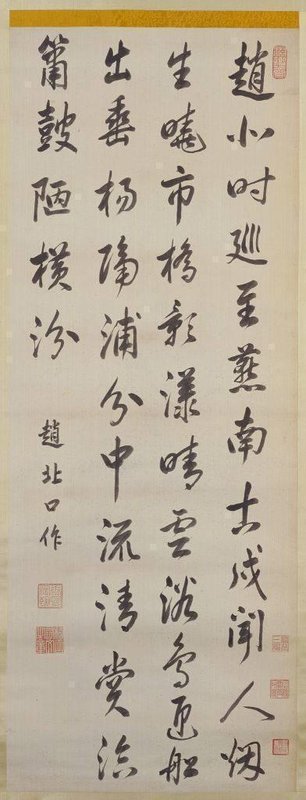 趙北时巡至燕南古戍聞人烟
生曉市橋影漾晴雲浴鳥迎船
出垂楊隔浦分中流清賞洽
簫鼓陋橫汾
趙北口作